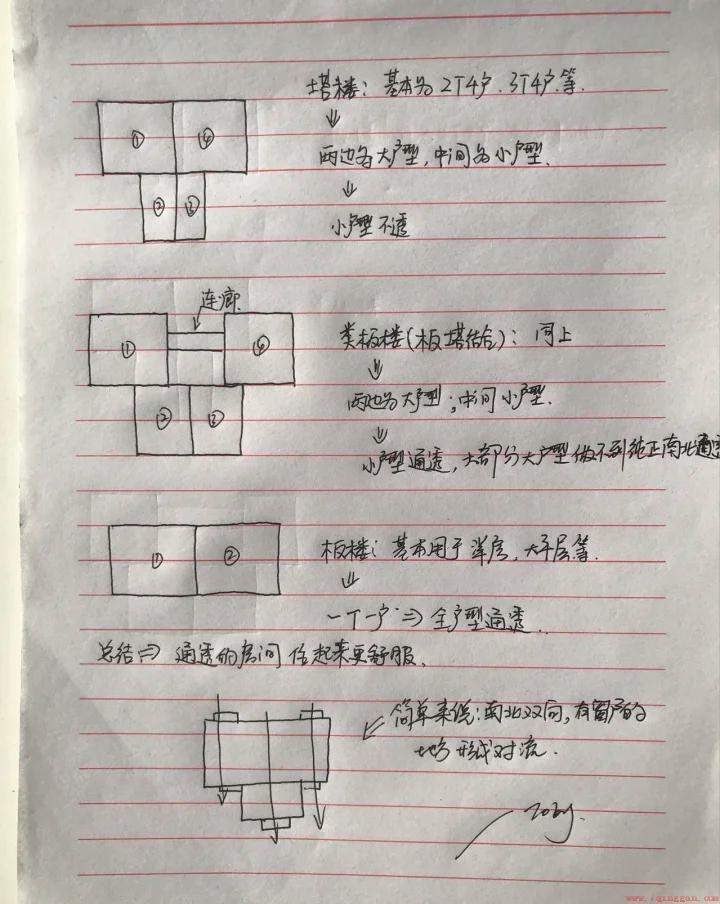 塔楼：基本为2T4户、3T4户等.
① ④
⇓
两边为大户型，中间为小户型.
② ③
⇓
小户型不透
连廊
① ④
类板楼（板塔结合）：同上
⇓
两边为大户型；中间小户型.
② ③
⇓
小户型通透，大部分大户型做不到纯正南北通透
① ②
板楼：基本用于洋房，大平层等.
⇓
一T一户 ⇒ 全户型通透.
总结⇒ 通透的房间 住起来更舒服.
简单来说：南北双向，有窗户的
地方形成对流.
www.iqinggan.com